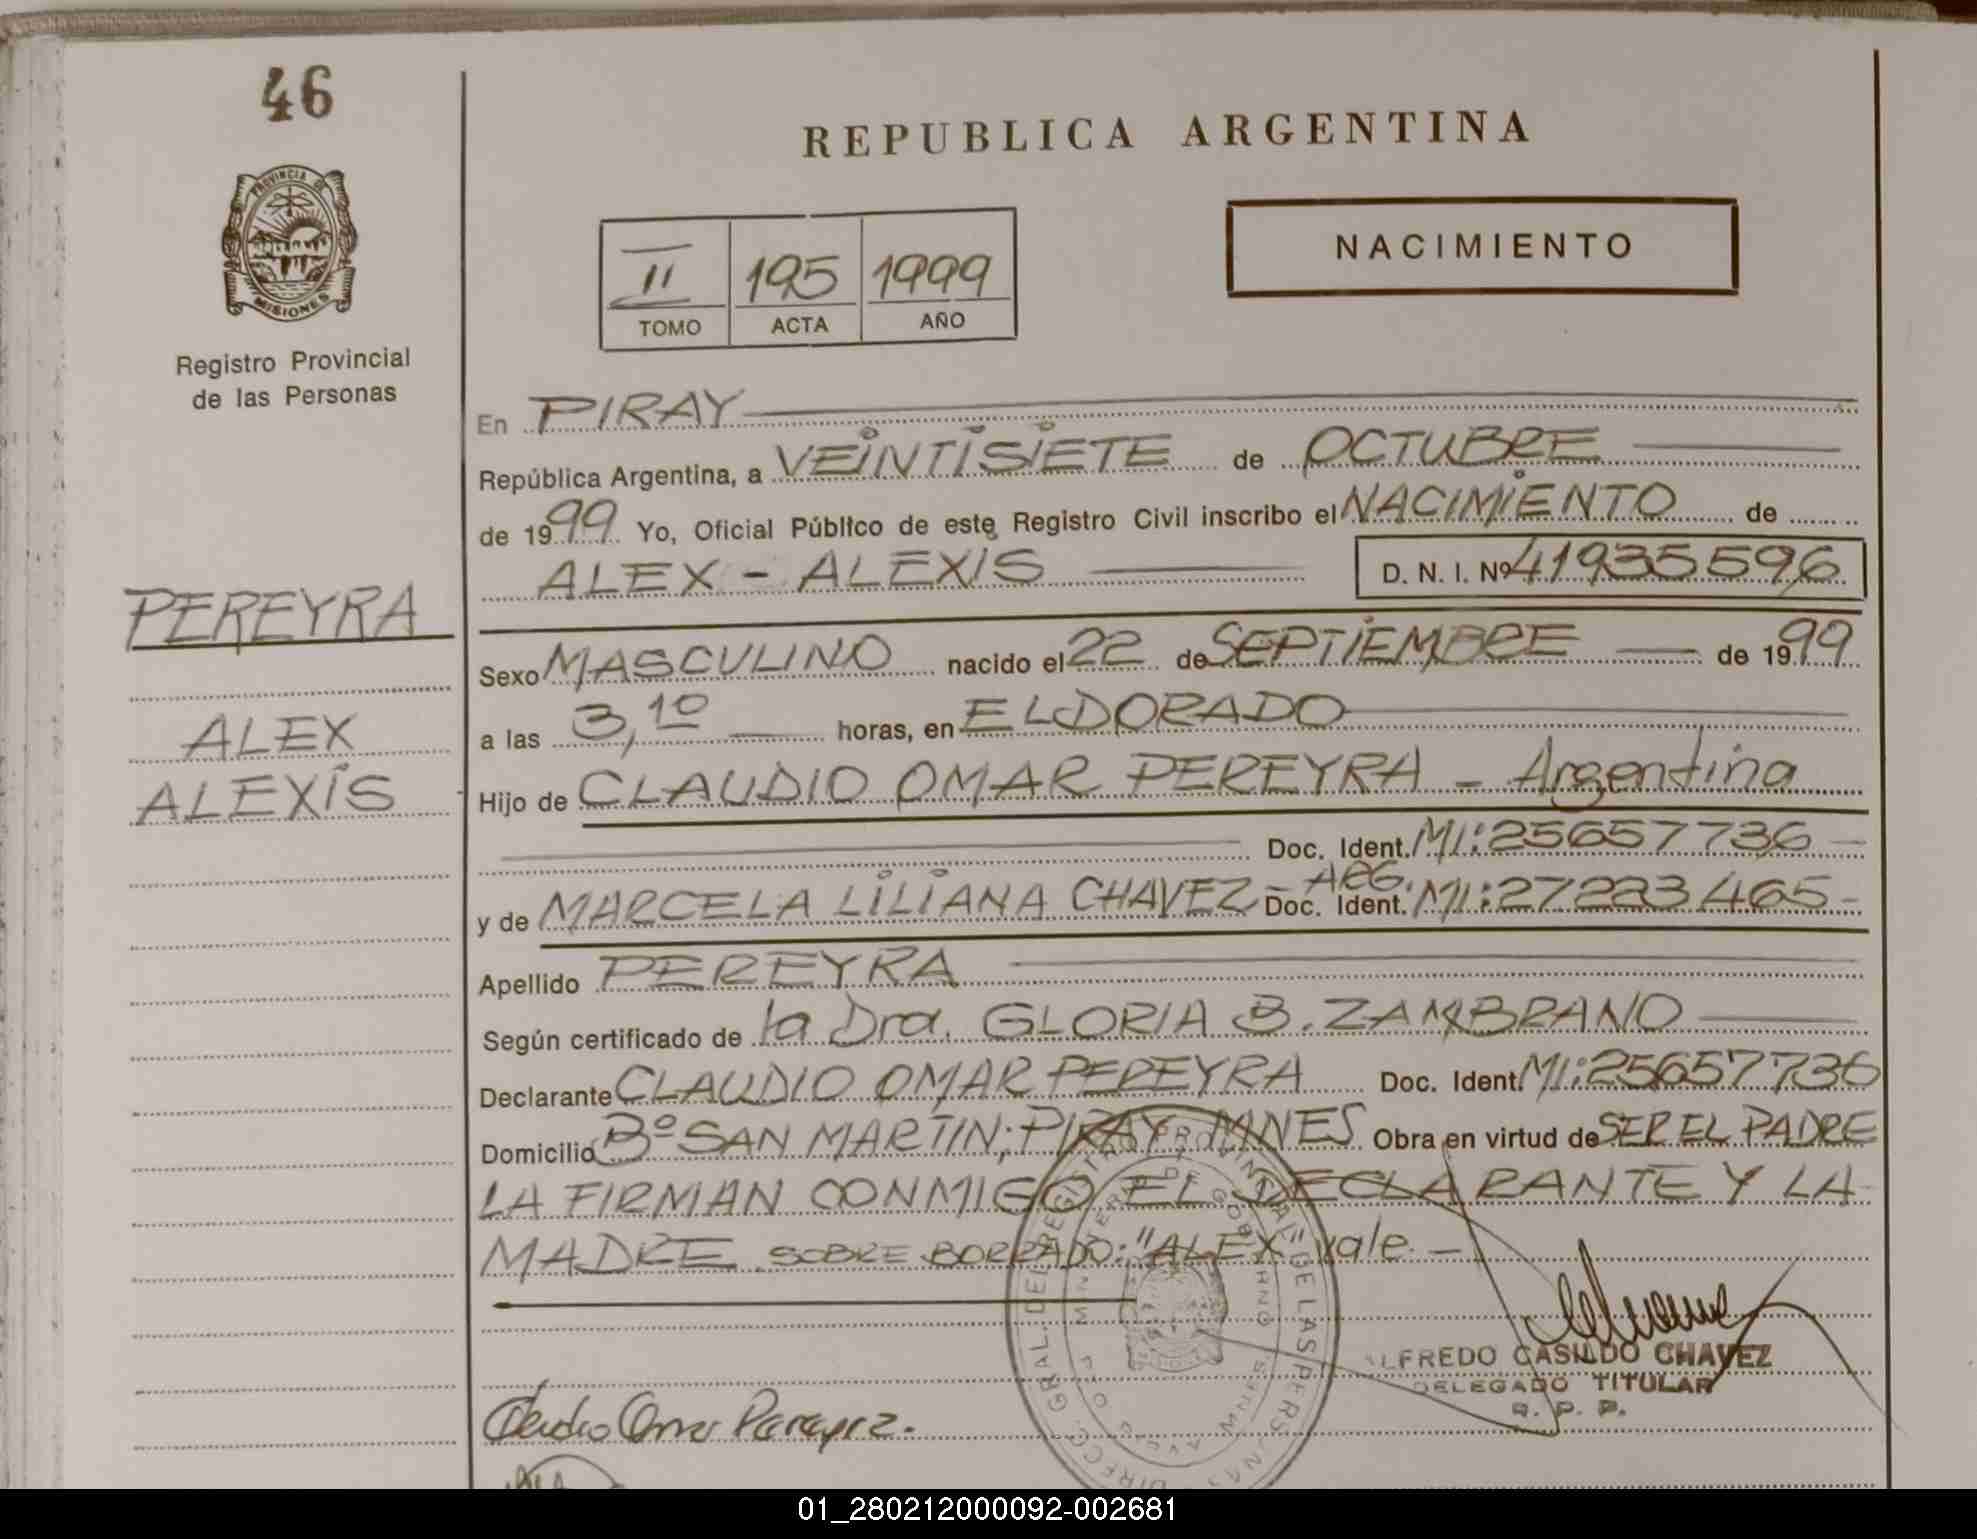 46
REPUBLICA ARGENTINA
PROVINCIA DE
MISIONES
NACIMIENTO
II 195 1999
TOMO ACTA AÑO
Registro Provincial
de las Personas
En PIRAY
República Argentina, a VEINTISIETE de OCTUBRE
de 1999 Yo, Oficial Público de este Registro Civil inscribo el NACIMIENTO de
ALEX - ALEXIS D. N. I. Nº 41935596
PEREYRA
Sexo MASCULINO nacido el 22 de SEPTIEMBRE de 1999
ALEX
a las 3,10 horas, en ELDORADO
ALEXIS
Hijo de CLAUDIO OMAR PEREYRA - Argentina
Doc. Ident. MI: 25657736 -
y de MARCELA LILIANA CHAVEZ - ARG. Doc. Ident. MI: 27223465 -
Apellido PEREYRA
Según certificado de la Dra. GLORIA B. ZAMBRANO
Declarante CLAUDIO OMAR PEREYRA Doc. Ident. MI: 25657736
Domicilio Bº SAN MARTIN; PIRAY MNES Obra en virtud de SER EL PADRE
LA FIRMAN CONMIGO EL DECLARANTE Y LA
MADRE. SOBRE BORRADO: "ALEX" vale. -
DIRECC. GRAL. DEL REGISTRO PROVINCIAL DE LAS PERSONAS
MINISTERIO DE GOBIERNO
ALFREDO CASILDO CHAVEZ
DELEGADO TITULAR
R. P. P.
Claudio Omar Pereyra.
01_280212000092-002681